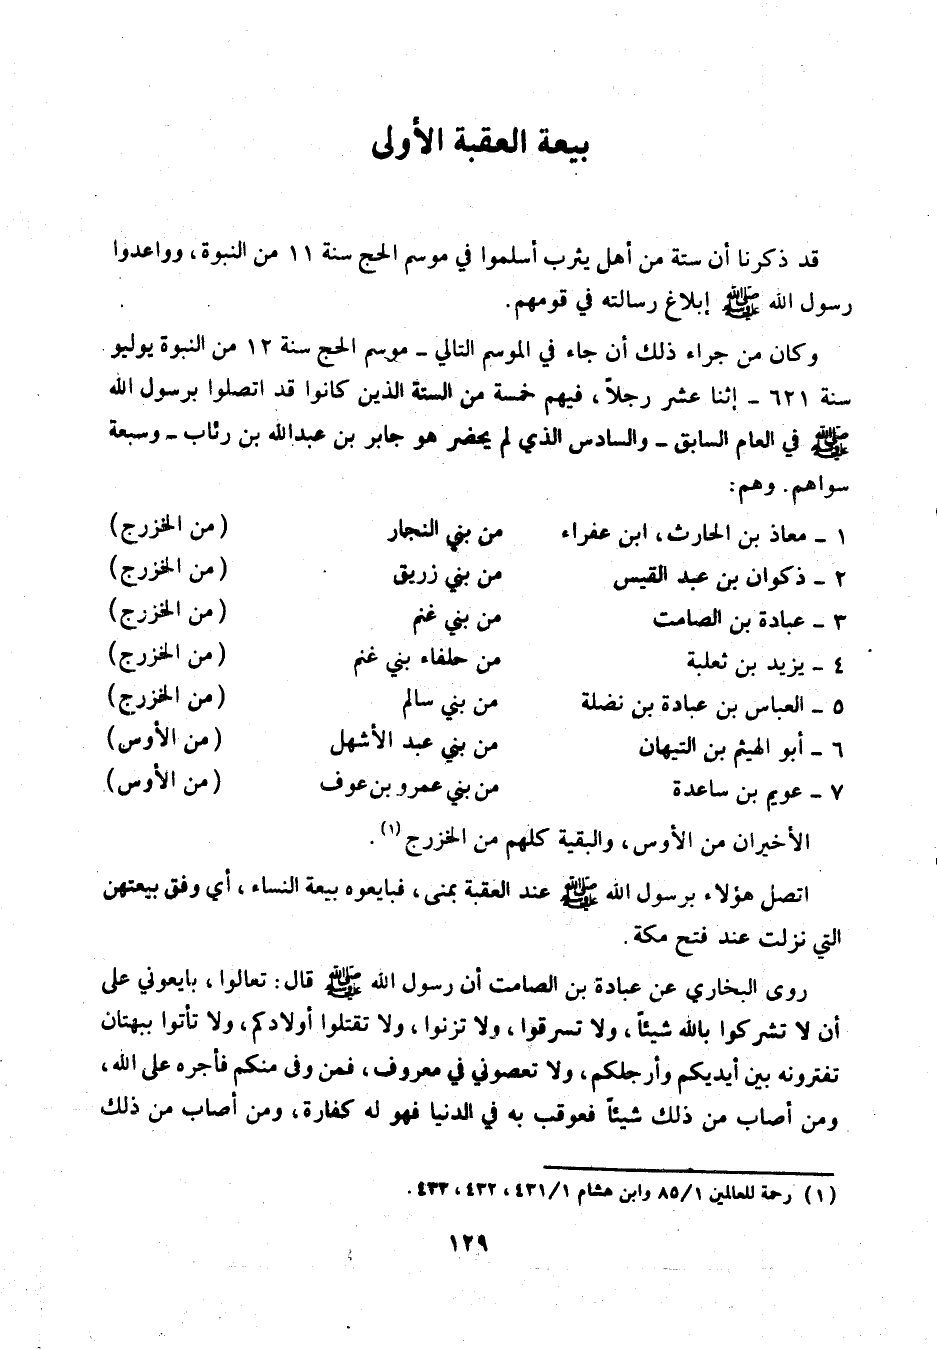 بيعة العقبة الأولى
قد ذكرنا أن ستة من أهل يثرب أسلموا في موسم الحج سنة ١١ من النبوة، وواعدوا
رسول الله ﷺ إبلاغ رسالته في قومهم.
وكان من جراء ذلك أن جاء في الموسم التالي ـ موسم الحج سنة ١٢ من النبوة يوليو
سنة ٦٢١ ـ إثنا عشر رجلاً، فيهم خمسة من الستة الذين كانوا قد اتصلوا برسول الله
ﷺ في العام السابق ـ والسادس الذي لم يحضر هو جابر بن عبدالله بن رئاب ـ وسبعة
سواهم. وهم:
١ ـ معاذ بن الحارث، ابن عفراء من بني النجار (من الخزرج)
٢ ـ ذكوان بن عبد القيس من بني زريق (من الخزرج)
٣ ـ عبادة بن الصامت من بني غنم (من الخزرج)
٤ ـ يزيد بن ثعلبة من حلفاء بني غنم (من الخزرج)
٥ ـ العباس بن عبادة بن نضلة من بني سالم (من الخزرج)
٦ ـ أبو الهيثم بن التيهان من بني عبد الأشهل (من الأوس)
٧ ـ عويم بن ساعدة من بني عمرو بن عوف (من الأوس)
الأخيران من الأوس، والبقية كلهم من الخزرج(١).
اتصل هؤلاء برسول الله ﷺ عند العقبة بمنى، فبايعوه بيعة النساء، أي وفق بيعتهن
التي نزلت عند فتح مكة.
روى البخاري عن عبادة بن الصامت أن رسول الله ﷺ قال: تعالوا، بايعوني على
أن لا تشركوا بالله شيئاً، ولا تسرقوا، ولا تزنوا، ولا تقتلوا أولادكم، ولا تأتوا ببهتان
تفترونه بين أيديكم وأرجلكم، ولا تعصوني في معروف، فمن وفى منكم فأجره على الله،
ومن أصاب من ذلك شيئاً فعوقب به في الدنيا فهو له كفارة، ومن أصاب من ذلك
(١) رحمة للعالمين ٨٥/١ وابن هشام ٤٣١/١، ٤٣٢، ٤٣٣.
١٢٩